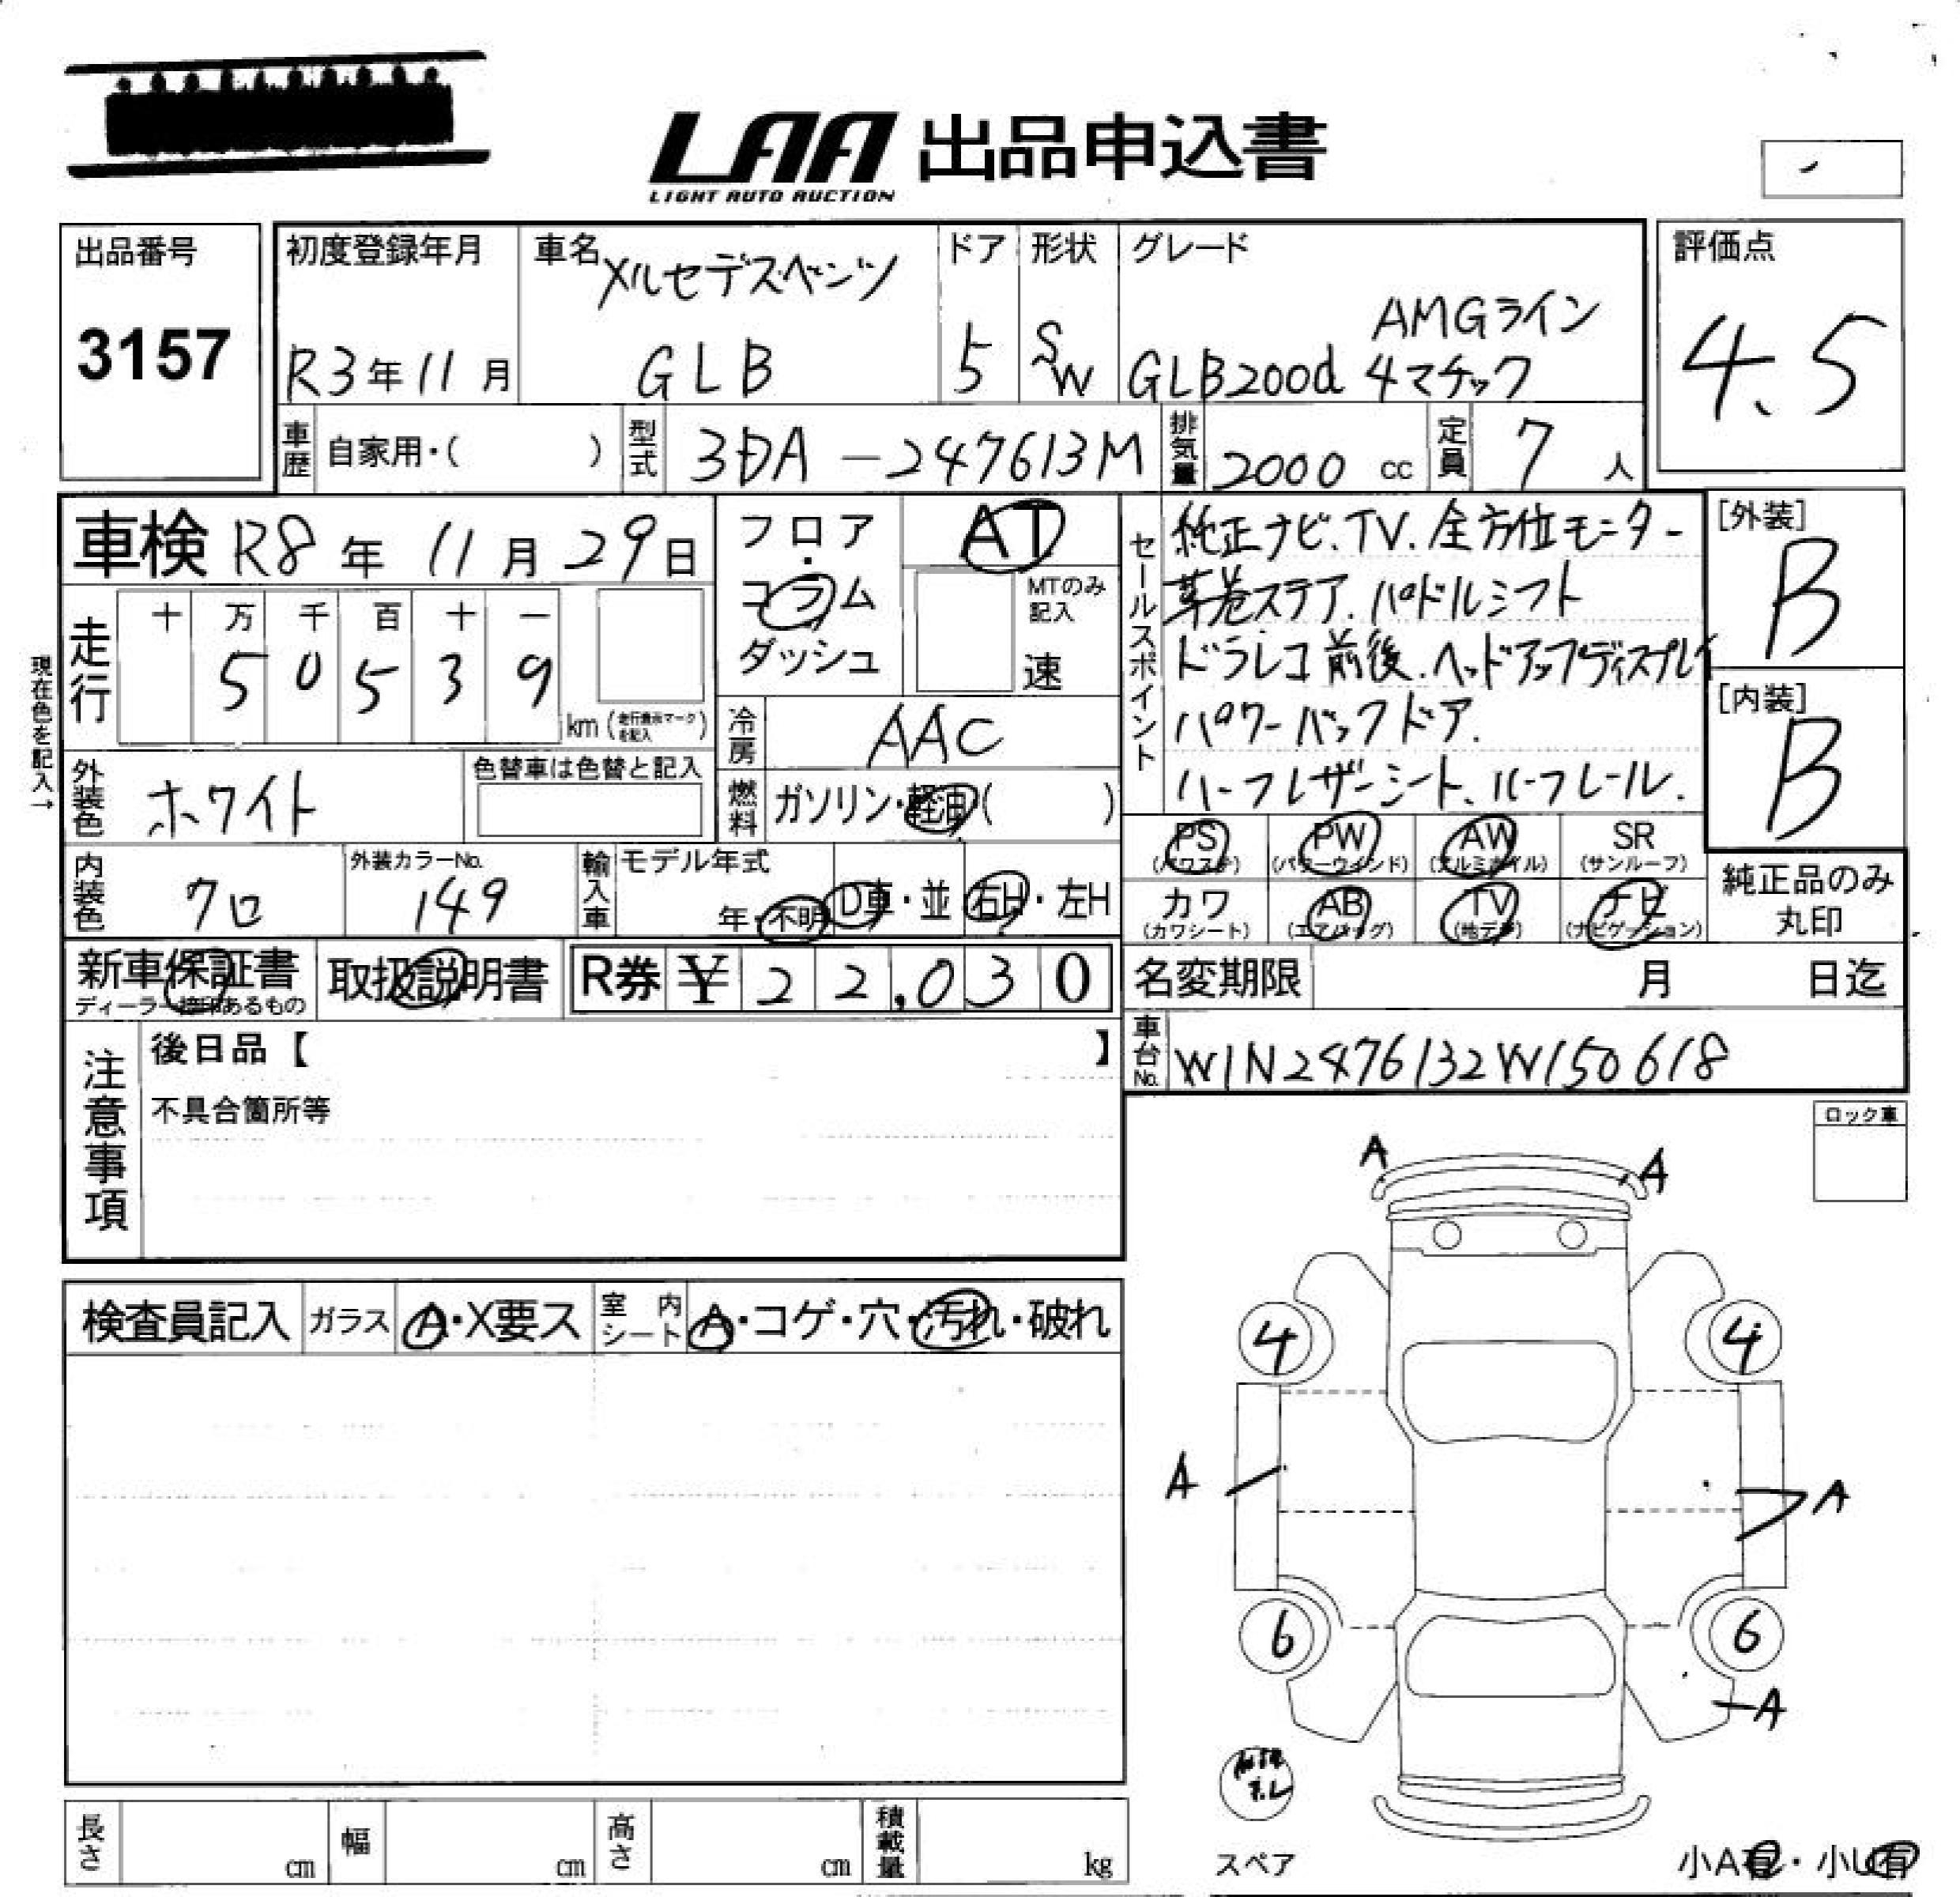 LAA 出品申込書
LIGHT AUTO AUCTION
出品番号
3157
初度登録年月
R3年11月
車名
メルセデスベンツ
GLB
ドア
5
形状
SW
グレード
AMGライン
GLB200d 4マチック
評価点
4.5
車歴 自家用・( )
型式 3DA-247613M
排気量 2000 cc
定員 7 人
車検 R8年 11月 29日
フロア・コラム ダッシュ
AT
MTのみ記入
速
現在色を記入→
走行
十 万 千 百 十 一
5 0 5 3 9
km (走行表示マークを記入)
冷房 AAC
外装色 ホワイト
色替車は色替と記入
燃料 ガソリン・軽油( )
内装色 クロ
外装カラーNo. 149
輸入車 モデル年式
年・不明 D車・並 右H・左H
セールスポイント
純正ナビ、TV、全方位モニター
革巻ステア、パドルシフト
ドラレコ前後、ヘッドアップディスプレイ
パワーバックドア.
ハーフレザーシート、ルーフレール.
[外装]
B
[内装]
B
PS (パワステ)
PW (パワーウィンド)
AW (アルミホイル)
SR (サンルーフ)
カワ (カワシート)
AB (エアバッグ)
TV (地デジ)
ナビ (ナビゲーション)
純正品のみ丸印
新車保証書
ディーラー捺印あるもの
取扱説明書
R券 ¥22,030
名変期限 月 日迄
車台No. W1N2476132W150618
注意事項
後日品【 】
不具合箇所等
ロック車
検査員記入
ガラス A・X要ス
室内シート A・コゲ・穴・汚れ・破れ
A
A
4
4
A
A
6
6
A
スペア
小A有・小U有
長さ cm
幅 cm
高さ cm
積載量 kg